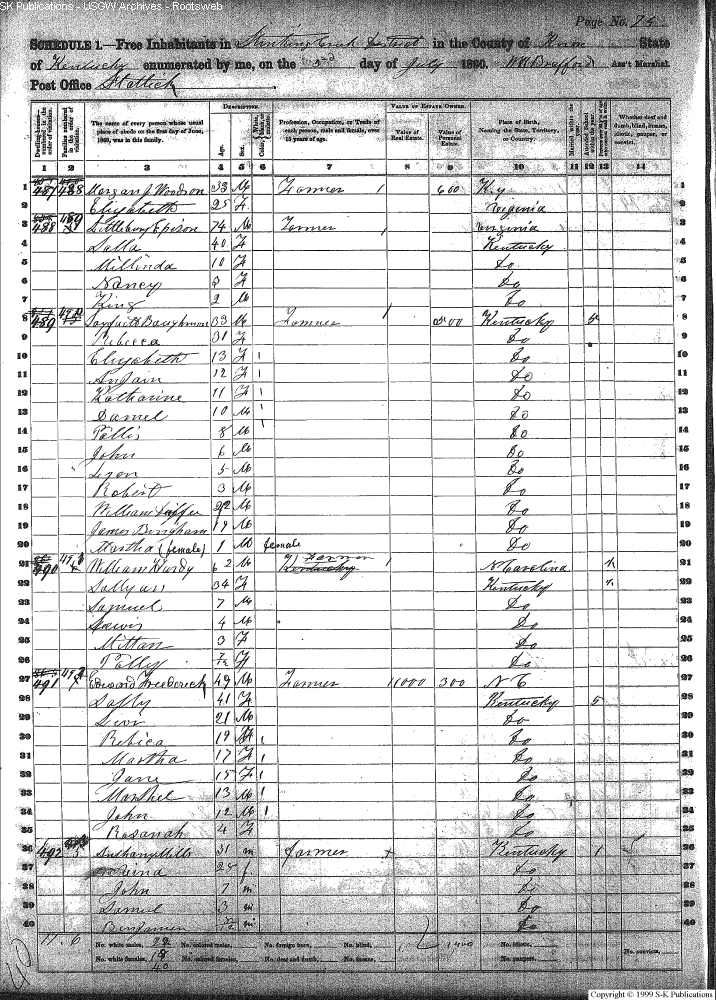 SK Publications - USGW Archives - Rootsweb
Page No. 75
SCHEDULE 1.—Free Inhabitants in District in the County of Knox State
of Kentucky enumerated by me, on the 5th day of July 1860. Ass't Marshal.
Post Office
DESCRIPTION. VALUE OF ESTATE OWNED.
Dwelling-houses—numbered in the order of visitation. Families numbered in the order of visitation. The name of every person whose usual place of abode on the first day of June, 1860, was in this family. Age. Sex. Color, White, black, or mulatto. Profession, Occupation, or Trade of each person, male and female, over 15 years of age. Value of Real Estate. Value of Personal Estate. Place of Birth, Naming the State, Territory, or Country. Married within the year. Attended School within the year. Whether deaf and dumb, blind, insane, idiotic, pauper, or convict.
1 2 3 4 5 6 7 8 9 10 11 12 13 14
1 487 488 Morgan J Woodson 33 M Farmer 600 Ky 1
2 Elizabeth 25 F Virginia 2
3 488 489 74 M Farmer Virginia 3
4 40 F Kentucky 4
5 Millinda 10 F Do 5
6 Nancy 8 F Do 6
7 King 2 M Do 7
8 489 Baughmon 33 M Farmer Kentucky 8
9 Rebecca 31 F Do 9
10 Elizabeth 13 F Do 10
11 12 F Do 11
12 Katharine 11 F Do 12
13 Daniel 10 M Do 13
14 8 M Do 14
15 John 6 M Do 15
16 5 M Do 16
17 Robert 3 M Do 17
18 William 22 M Do 18
19 James Bingham 19 M Do 19
20 Martha (female) 1 M female Do 20
21 490 William Hardy 62 M Farmer Kentucky N Carolina 21
22 Sally an 34 F Kentucky 22
23 Samuel 7 M Do 23
24 Lewis 4 M Do 24
25 3 F Do 25
26 F Do 26
27 491 Edward Frederick 49 M Farmer 1000 300 N C 27
28 Sally 41 F Kentucky 28
29 Levi 21 M Do 29
30 Rebica 19 F Do 30
31 Martha 17 F Do 31
32 Jane 15 F Do 32
33 Marthel 13 M Do 33
34 John 12 M Do 34
35 Rosanah 4 F Do 35
36 492 Anthony Mills 31 m farmer Kentucky 1 36
37 28 f Do 37
38 John 7 m Do 38
39 Daniel 3 m Do 39
40 Benjamin m Do 40
No. white males, 22 No. colored males, No. foreign born, No. blind, No. idiotic, No. convicts,
No. white females, 18 No. colored females, No. deaf and dumb, No. insane, No. paupers,
40
Copyright © 1999 S-K Publications